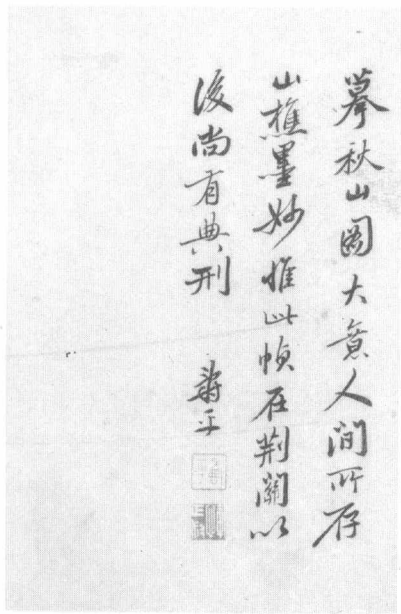 摹秋山圖大意人間所存
山樵墨妙惟此幀在荆關以
後尚有典刑
壽平